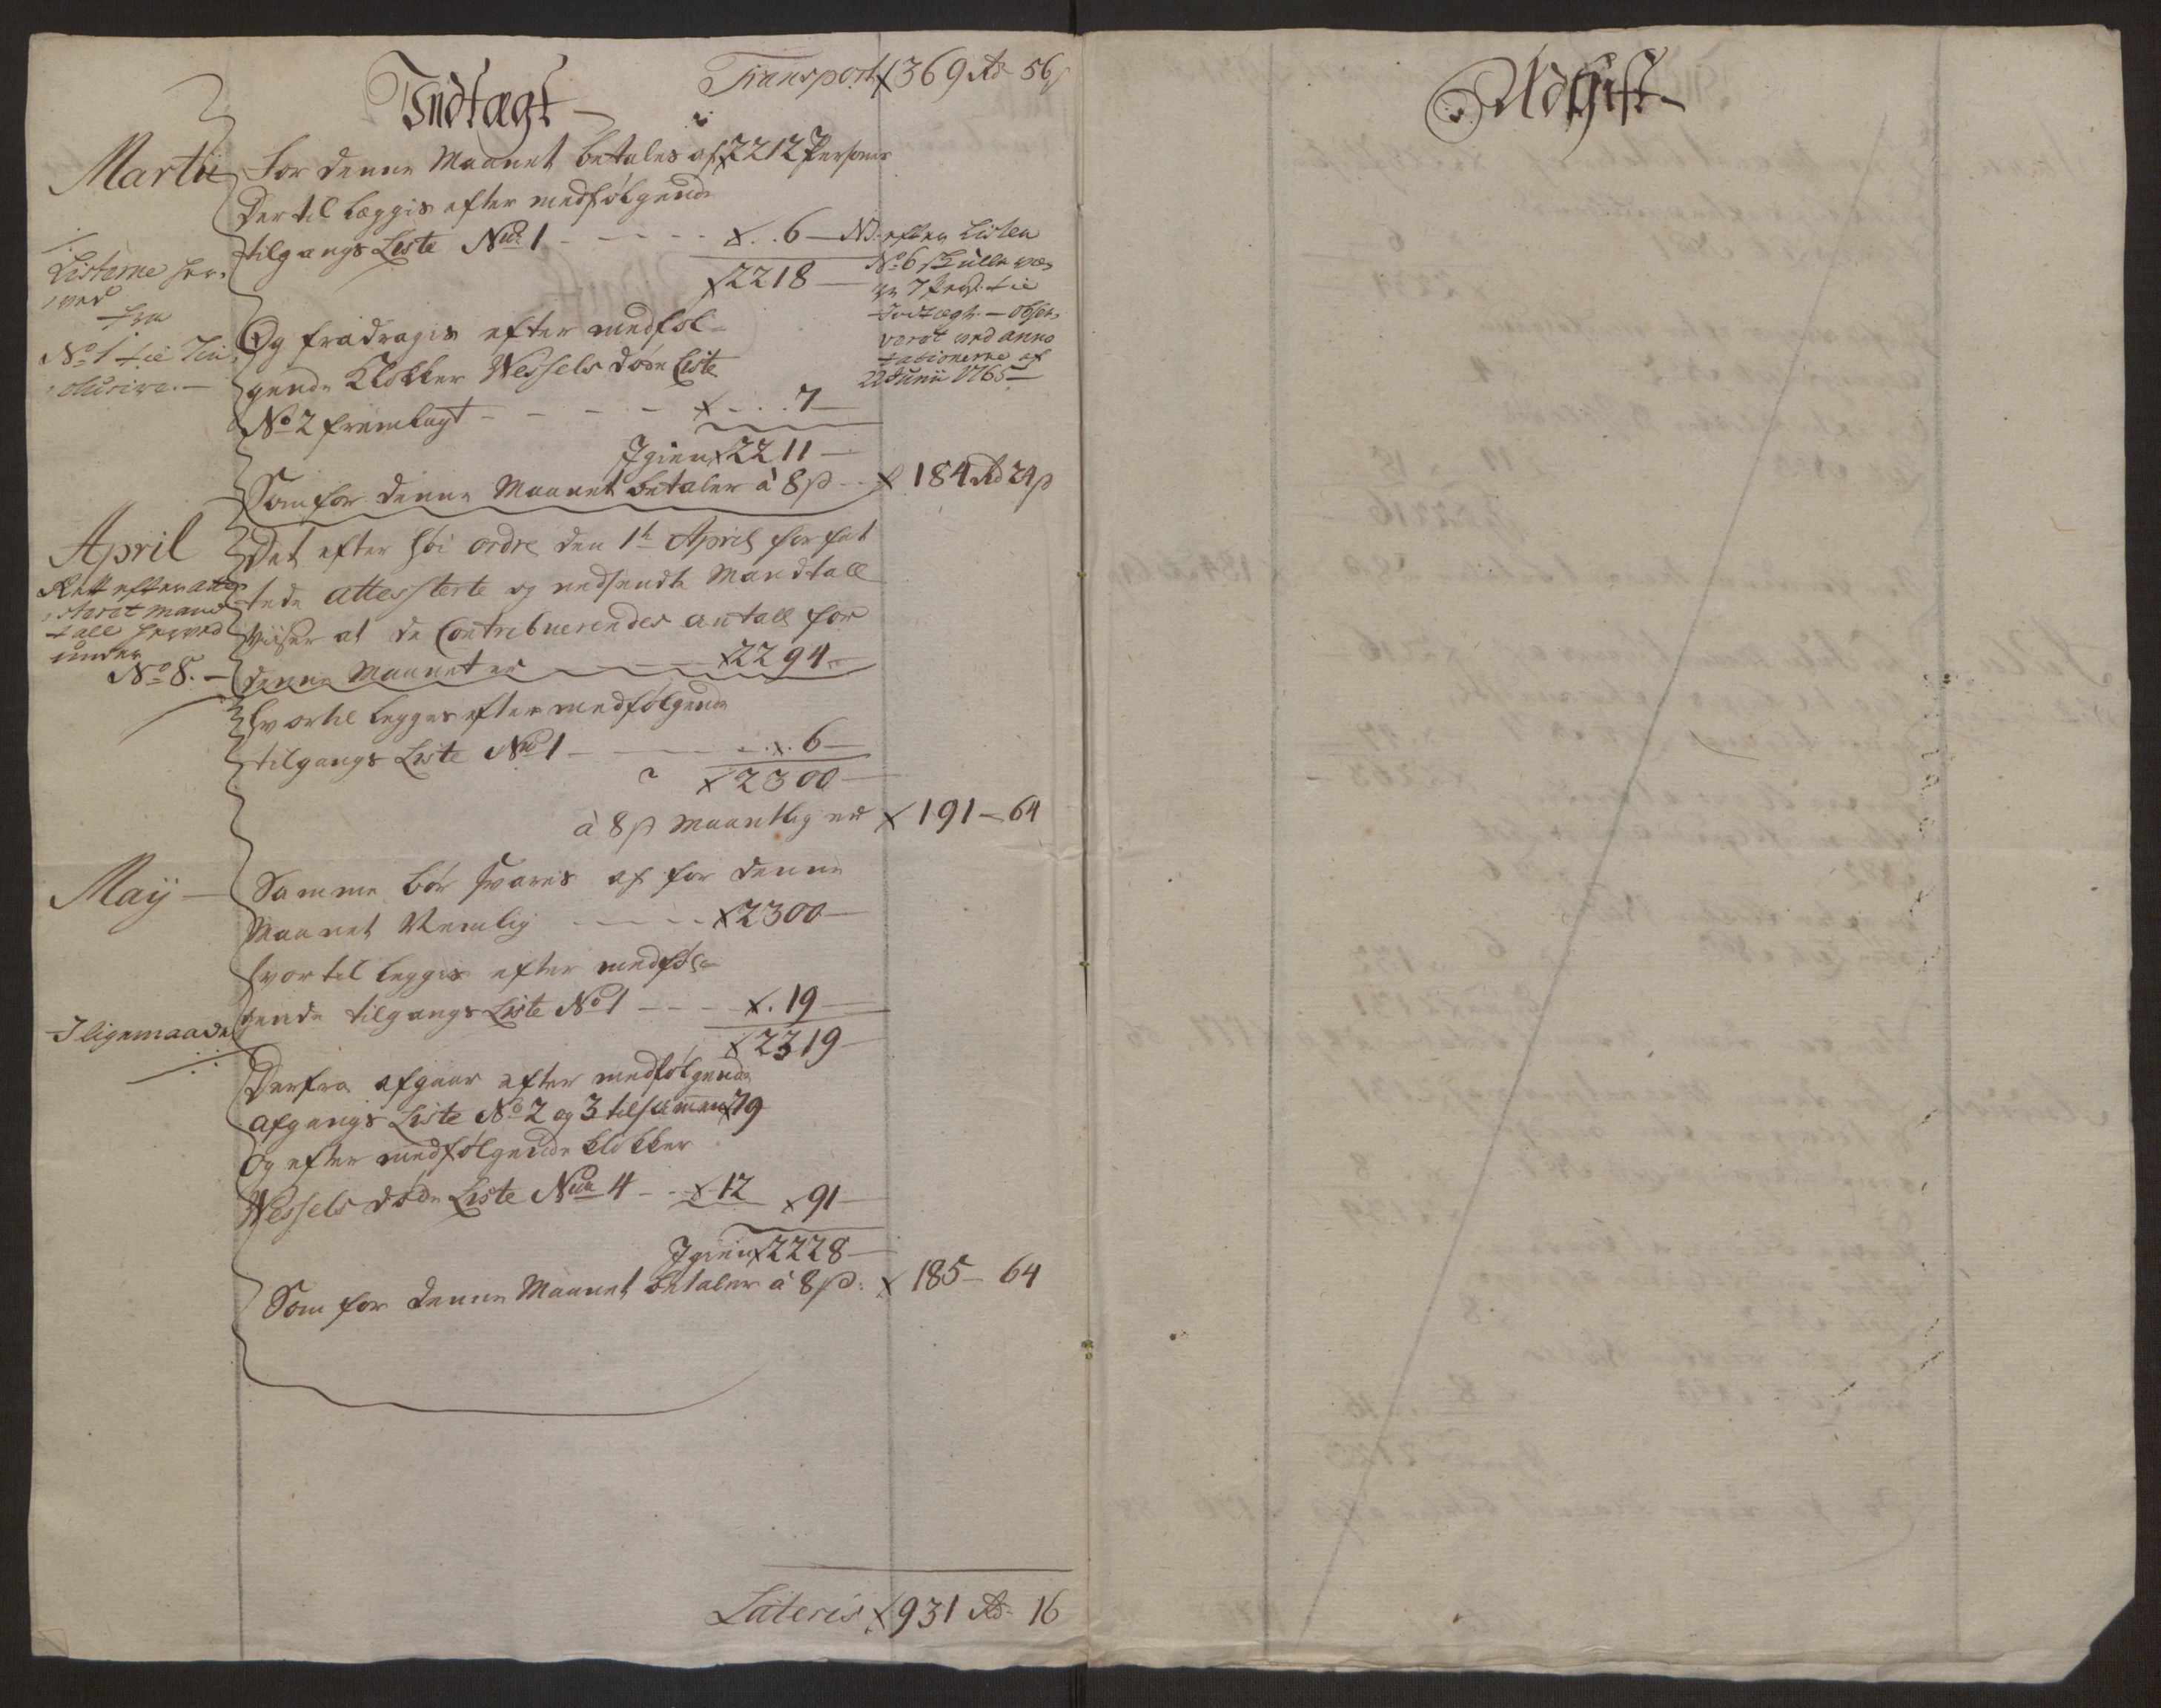 Indtægt
Transport 369 Rd 56 s
Martii
For denne Maanet betales af 2212 Personer
Der til lægges efter medfølgende
tilgangs Liste No. 1 - - - - 6 -
2218 -
NB. efter Listen
No. 6 skulle væ,
re 7 Pers. tie
Indtægt. - obser,
veret ved anno
tationerne af
22 Junii 1765 -
Listerne her,
ved
fra
No. 1 til 7 in,
clusive. -
Og fradragis efter medføl-
gende Klokker Wessels døde Liste
No 2 fremlagt - - - - 7 -
Igien 2211 -
Som for denne Maanet betaler à 8 s - 184 Rd 24 s
April
Det efter høi ordre den 1te April forfat
tede attesterte og nedsendte Mandtall
viiser at de Contribuerendes antall for
denne Maanet er - - 2294 -
Rett efter atte,
steret Mand
tall herved
under
No 8. -
hvortil legges efter medfølgende
tilgangs Liste No 1 - - - 6 -
2300 -
à 8 s Maantlig er 191 - 64
Maij -
Samme bør svares af for denne
Maanet Nemlig - - - 2300 -
hvortil leggis efter medføl-
gende tilgangs Liste No 1 - - - 19 -
2319 -
Iligemaade
Derfra afgaar efter medfølgende
afgangs Liste No 2 og 3 tilsammen 79
og efter medfølgende Klokker
Wessels døde Liste No 4 - - 12 91 -
Igien 2228 -
Som for denne Maanet betaler à 8 s: 185 - 64
Lateris 931 Rd 16
Udgift -